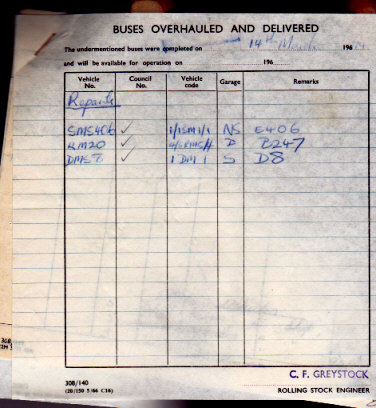 BUSES OVERHAULED AND DELIVERED
The undermentioned buses were completed on 14th March 196
and will be available for operation on 196
Vehicle No. Council No. Vehicle code Garage Remarks
Repaints
SMS406 ✓ 1/1SM1/1 NS E406
RM20 ✓ D B247
DMS8 ✓ 1DM1 S D8
C. F. GREYSTOCK
308/140
(20/150 5/66 C16) ROLLING STOCK ENGINEER